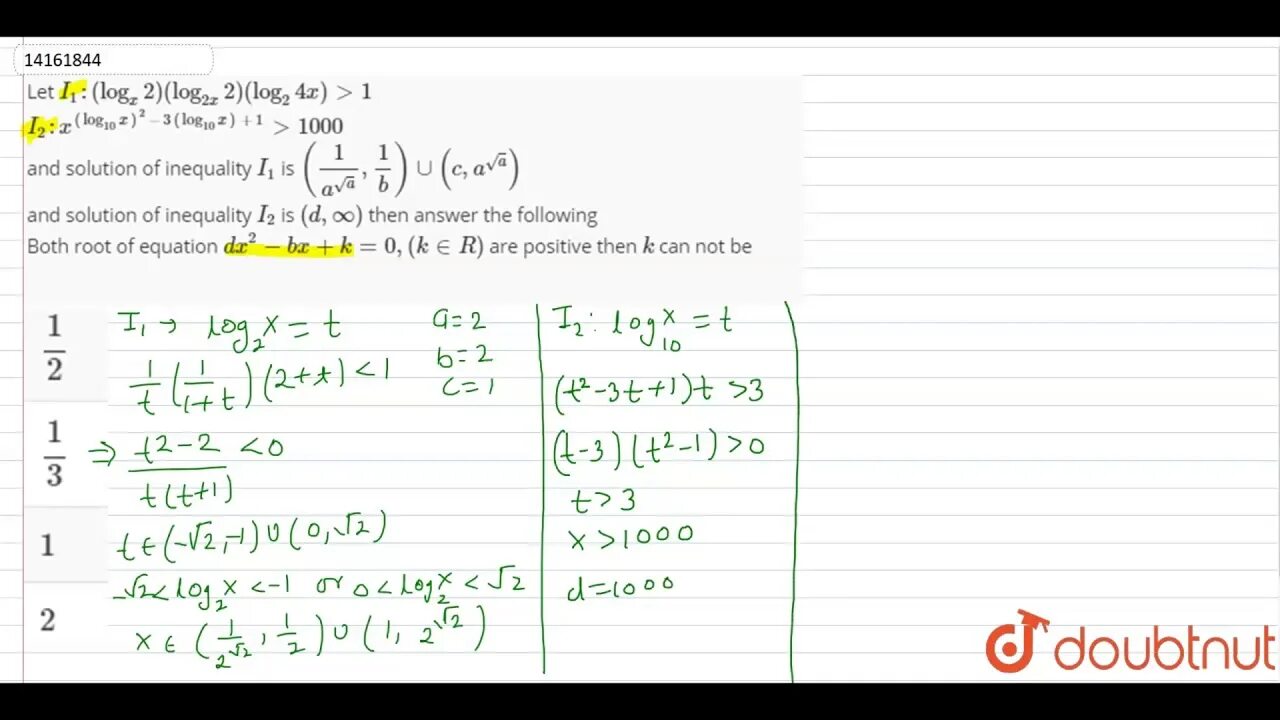 14161844
Let I₁ : (logₓ 2)(log₂ₓ 2)(log₂ 4x) > 1
I₂ : x^((log₁₀ x)² − 3(log₁₀ x) + 1) > 1000
and solution of inequality I₁ is (1/a^√a, 1/b) ∪ (c, a^√a)
and solution of inequality I₂ is (d, ∞) then answer the following
Both root of equation dx² − bx + k = 0, (k ∈ R) are positive then k can not be
1/2
1/3
1
2
I₁ → log₂x = t
a=2
1/t (1/(1+t)) (2+t) < 1
b=2
c=1
⇒ (t²−2)/(t(t+1)) < 0
t ∈ (−√2, −1) ∪ (0, √2)
−√2 < log₂x < −1 or 0 < log₂x < √2
x ∈ (1/2^√2, 1/2) ∪ (1, 2^√2)
I₂ : log₁₀x = t
(t²−3t+1)t > 3
(t−3)(t²−1) > 0
t > 3
x > 1000
d=1000
doubtnut